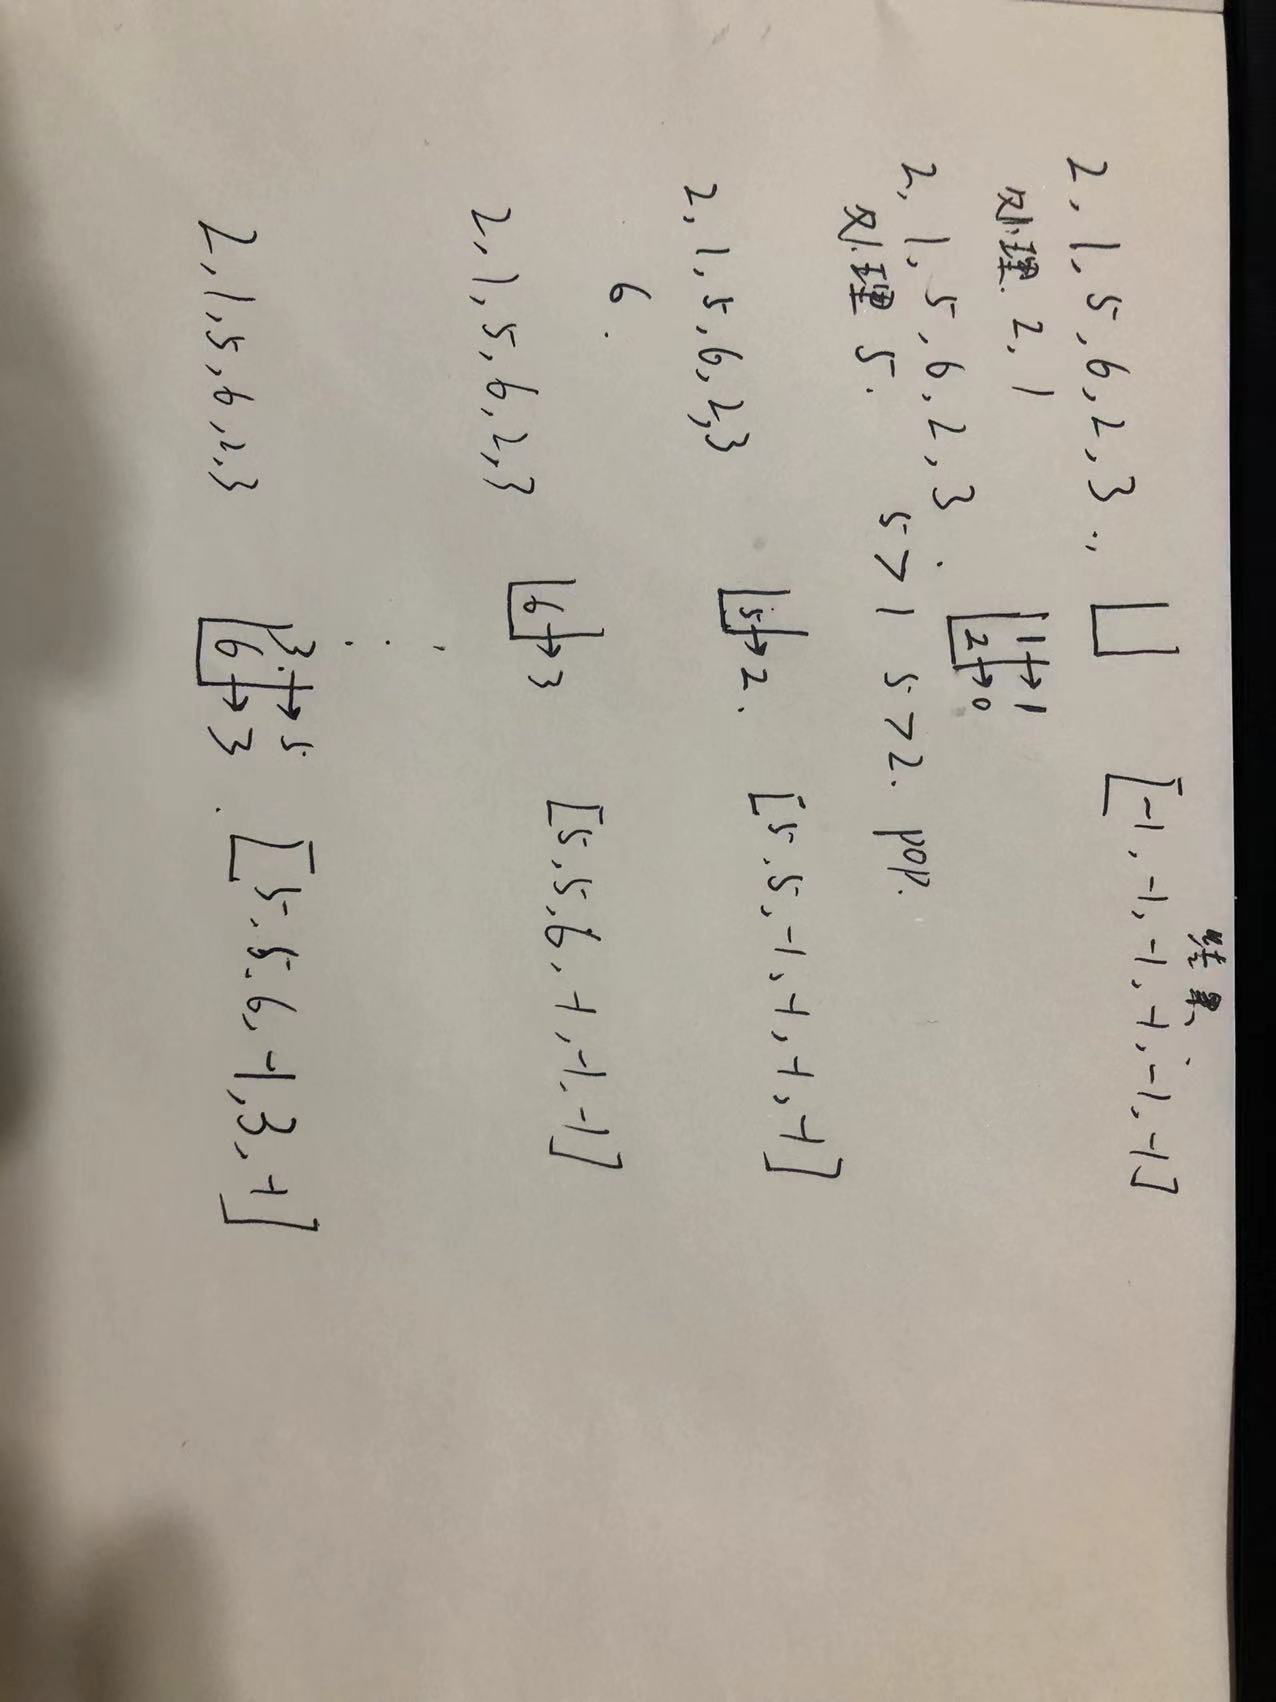 结果
2,1,5,6,2,3 [-1,-1,-1,-1,-1,-1]
处理 2,1
1→1
2→0
2,1,5,6,2,3
处理 5. 5>1 5>2. pop.
2,1,5,6,2,3 5→2. [5,5,-1,-1,-1,-1]
6.
2,1,5,6,2,3 6→3 [5,5,6,-1,-1,-1]
3→5
2,1,5,6,2,3 6→3. [5,5,6,-1,3,-1]